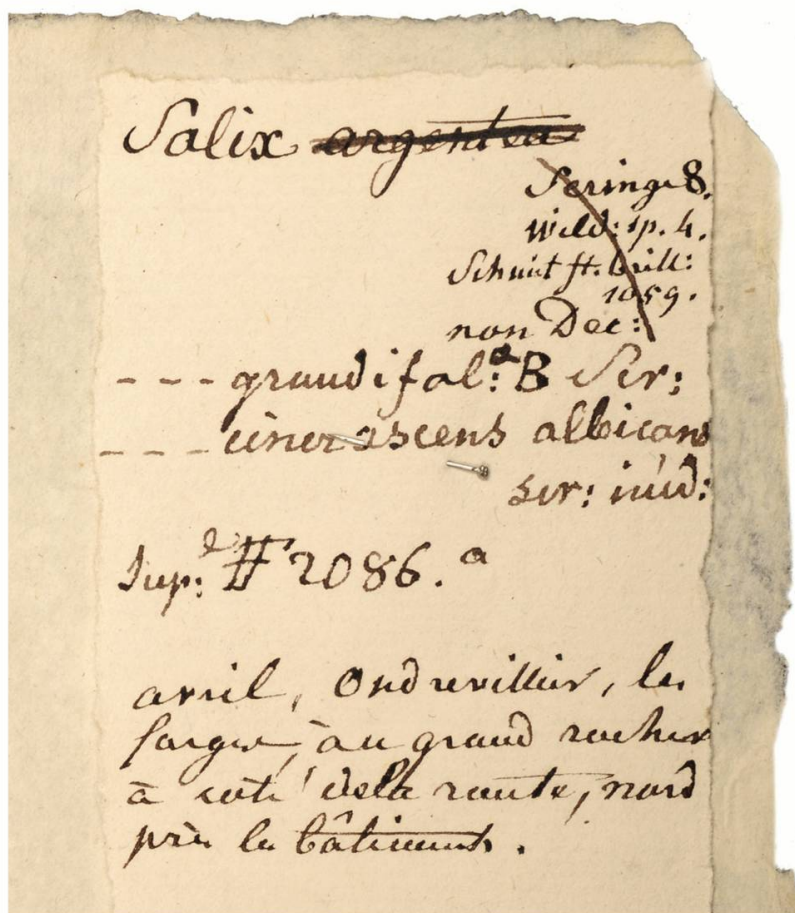 Salix argentea
Seringe 8.
Wild: sp. 4.
Schmit fl. britt:
1059.
non Dec:
--- grandifol:a B Ser:
--- cinerascens albicans
ser: inéd:
Sup:l # 2086.a
avril, Undrevillier, les
forges, au grand rocher
à coté dela route, nord
près les bâtiments.